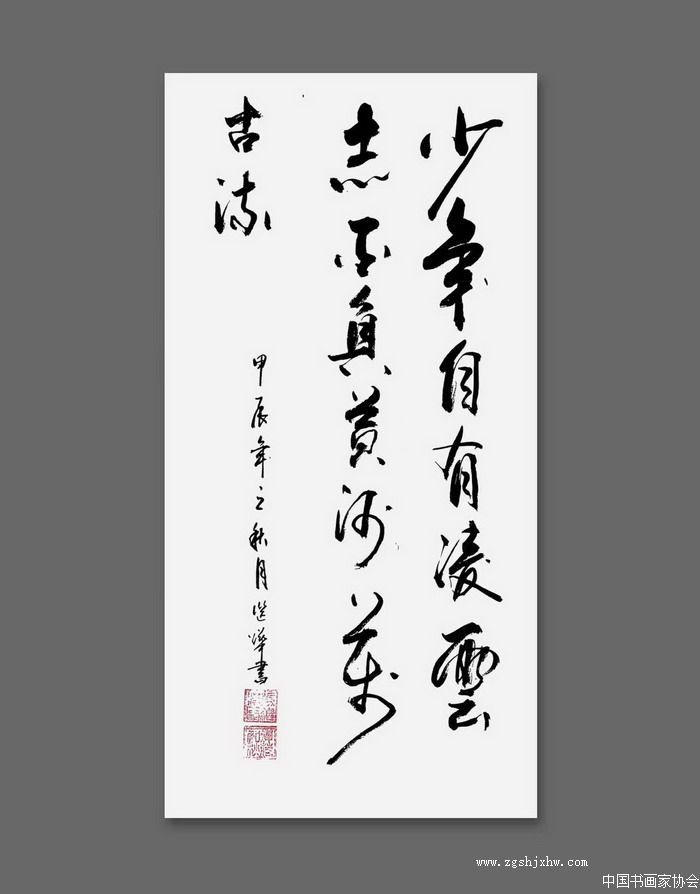 少年自有凌雲
志不負黃沙萬
古流
甲辰年之秋月書
www.zgshjxhw.com
中国书画家协会